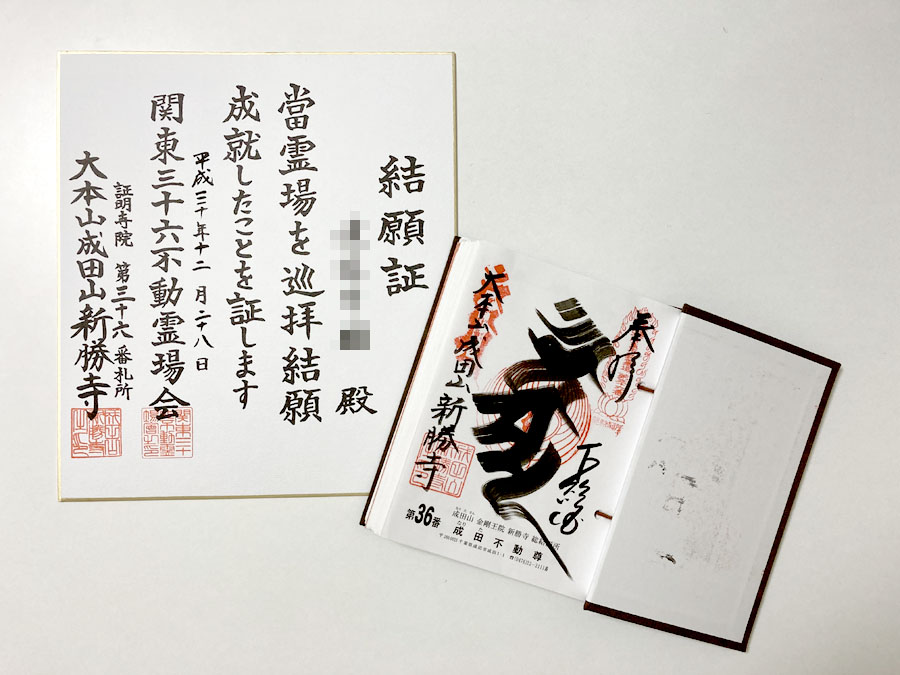 結願証
殿
當霊場を巡拝結願
成就したことを証します
平成三十年十二月二十八日
関東三十六不動霊場会
証明寺院 第三十六番札所
大本山成田山新勝寺
奉拝
大本山成田山新勝寺
第36番
成田山 金剛王院 新勝寺
成田不動尊